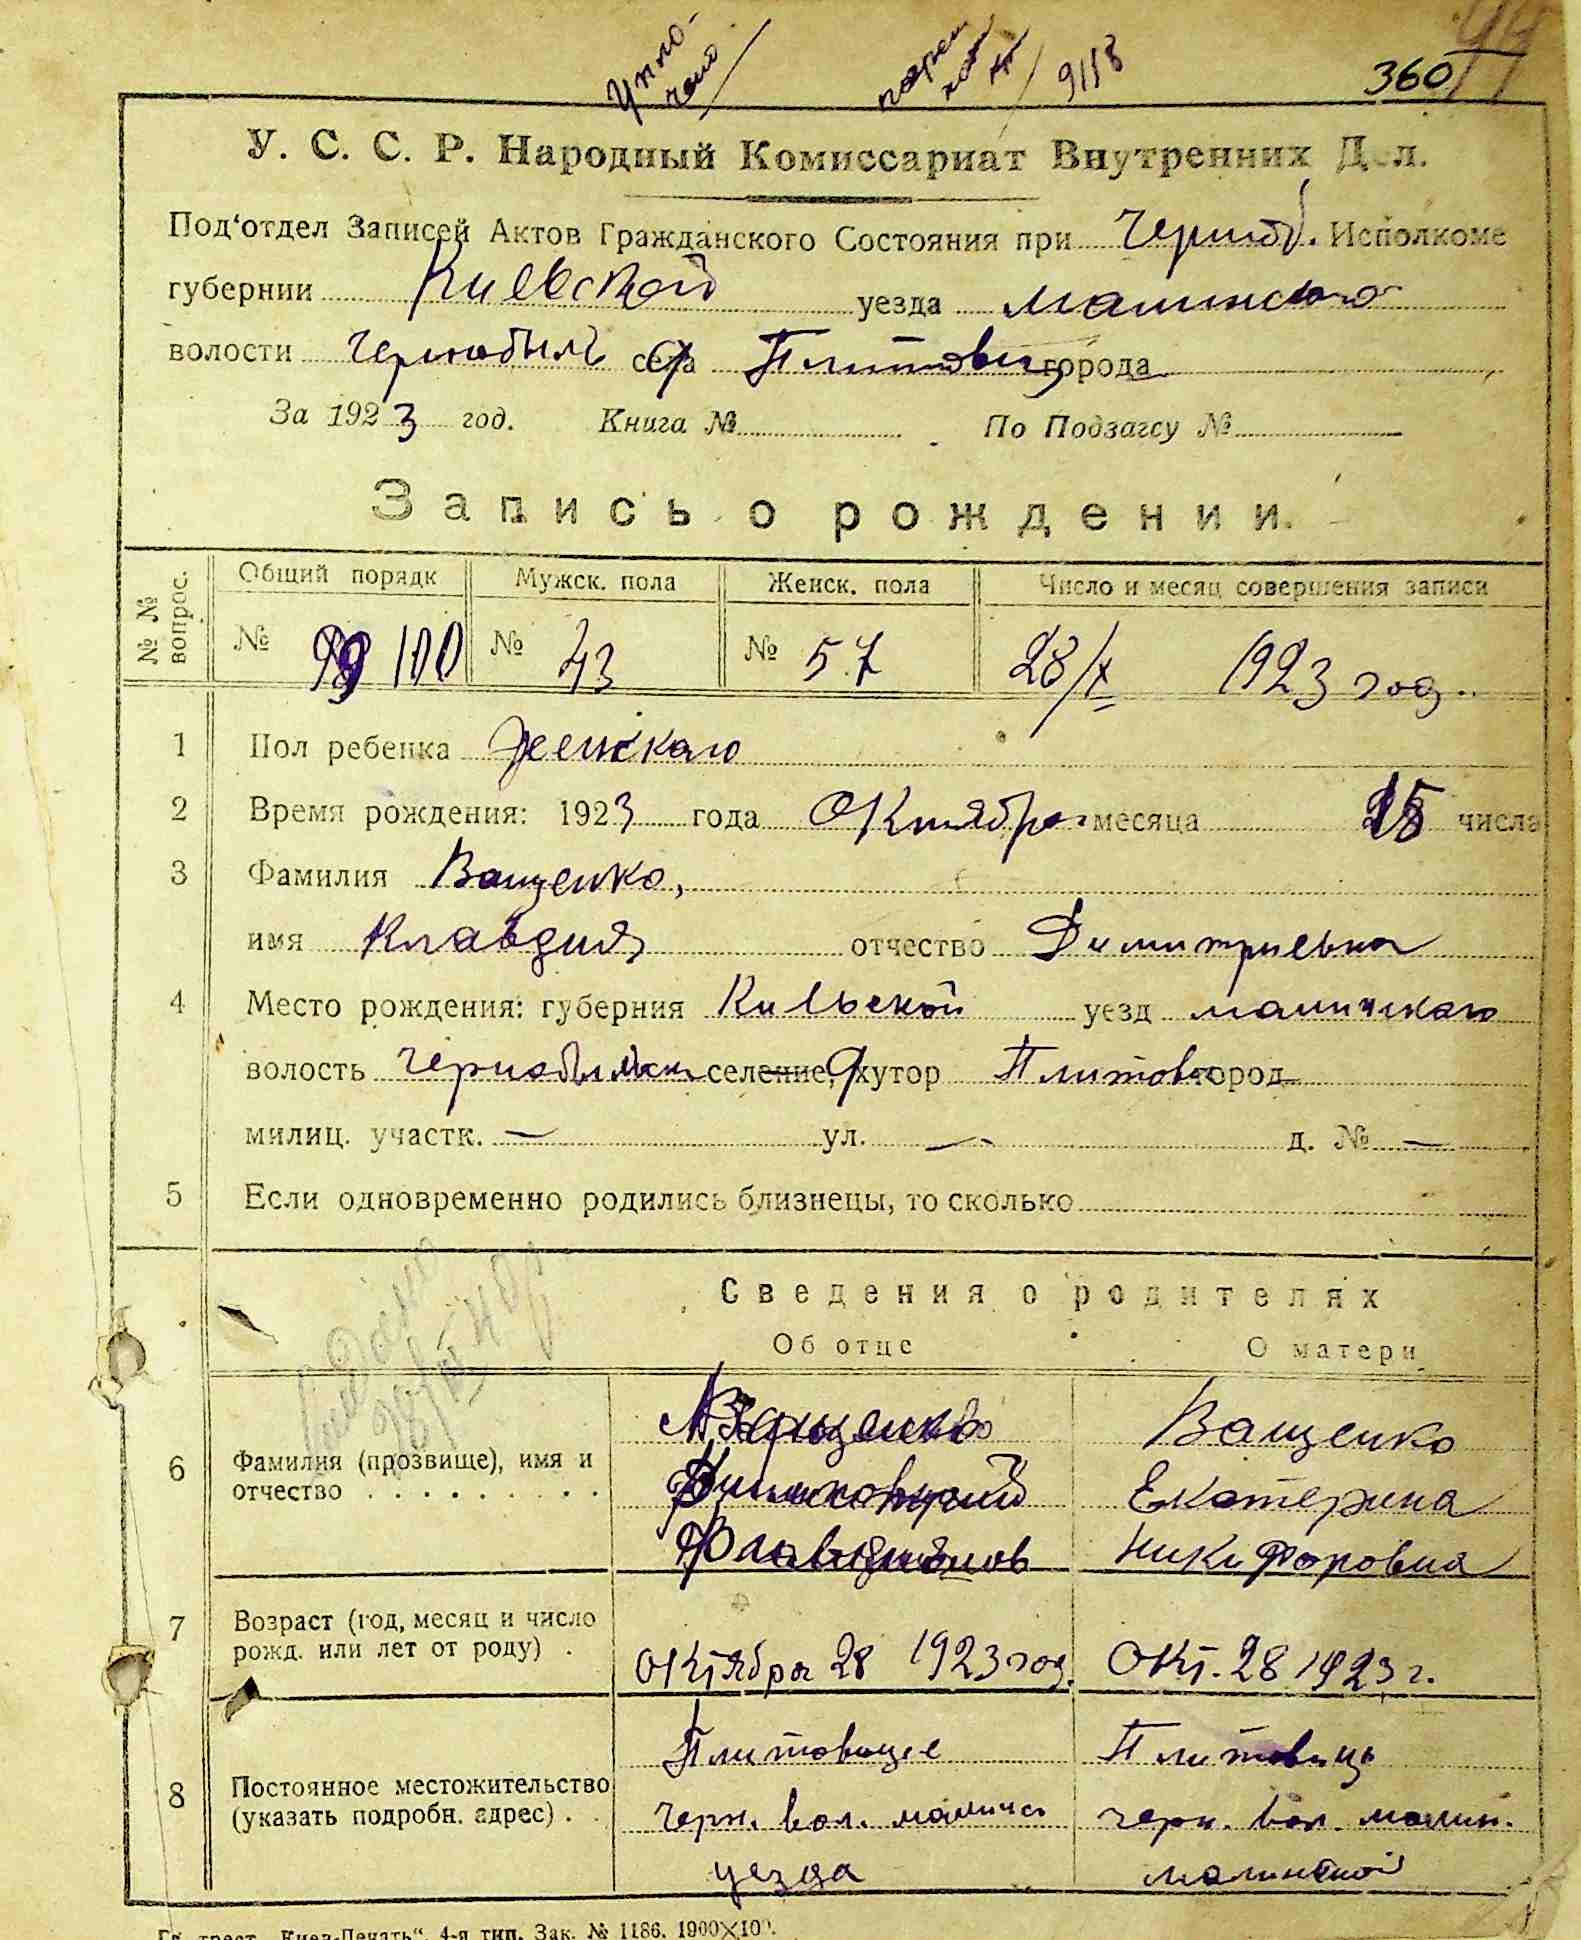 360
У. С. С. Р. Народный Комиссариат Внутренних Дел.
Под‘отдел Записей Актов Гражданского Состояния при Черноб. Исполкоме
губернии Киевской уезда малинского
волости Чернобыль села Плитовищ города
За 1923 год. Книга № По Подзагсу №
Запись о рождении.
№ № вопрос. Общий порядк Мужск. пола Женск. пола Число и месяц совершения записи
№ 100 № 43 № 57 28/X 1923 год.
1 Пол ребенка женскаго
2 Время рождения: 1923 года Октября месяца числа
3 Фамилия Ващенко,
имя Клавдия отчество Димитриевна
4 Место рождения: губерния Киевской уезд
волость селение, хутор город
милиц. участк. — ул. — д. № —
5 Если одновременно родились близнецы, то сколько
Сведения о родителях
Об отце О матери
6 Фамилия (прозвище), имя и Ващенко Ващенко
отчество . . . . . . . . . Екатерина
Никифоровна
7 Возраст (год, месяц и число
рожд. или лет от роду) . Октября 28 1923 год. Окт. 28 1923 г.
Плитовище Плитовищ
8 Постоянное местожительство
(указать подробн. адрес) . . Черн. вол. черн. вол. малин.
уезда малинской
Гл. трест „Киев-Печать“, 4-я тип. Зак. № 1186. 1900×10